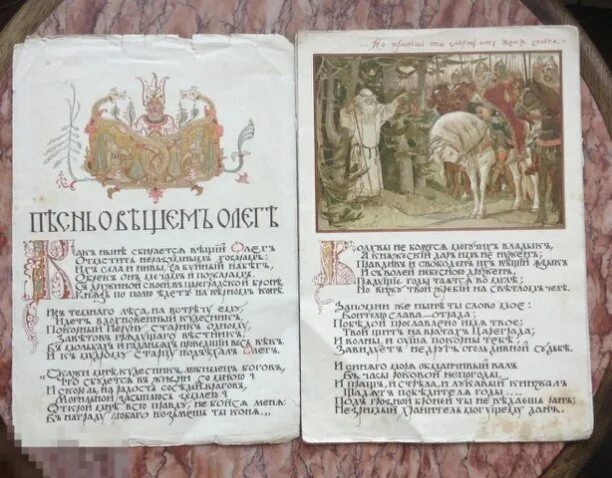 ПѢСНЬ О ВѢЩЕМЪ ОЛЕГѢ
Какъ нынѣ сбирается вѣщій Олегъ
Отмстить неразумнымъ хозарамъ:
Ихъ села и нивы за буйный набѣгъ
Обрекъ онъ мечамъ и пожарамъ.
Съ дружиной своей въ цареградской бронѣ,
Князь по полю ѣдетъ на вѣрномъ конѣ.
Изъ темнаго лѣса, на встрѣчу ему,
Идетъ вдохновенный кудесникъ,
Покорный Перуну старикъ одному,
Завѣтовъ грядущаго вѣстникъ,
Въ мольбахъ и гаданьяхъ проведшій весь вѣкъ.
И къ мудрому старцу подъѣхалъ Олегъ.
Скажи мнѣ, кудесникъ, любимецъ боговъ,
Что сбудется въ жизни со мною?
И скоро ль, на радость сосѣдей-враговъ,
Могильной засыплюсь землею?
Открой мнѣ всю правду, не бойся меня:
Въ награду любаго возьмешь ты коня...
Но примешь ты смерть отъ коня своего.
Волхвы не боятся могучихъ владыкъ,
А княжескій даръ имъ не нуженъ;
Правдивъ и свободенъ ихъ вѣщій языкъ
И съ волей небесною друженъ.
Грядущіе годы таятся во мглѣ;
Но вижу твой жребій на свѣтломъ челѣ.
Запомни же нынѣ ты слово мое:
Воителю слава - отрада;
Побѣдой прославлено имя твое;
Твой щитъ на вратахъ Цареграда;
И волны, и суша покорны тебѣ;
Завидуетъ недругъ столь дивной судьбѣ.
И синяго моря обманчивый валъ
Въ часы роковой непогоды,
И пращъ, и стрѣла, и лукавый кинжалъ
Щадятъ побѣдителя годы....
Подъ грозной броней ты не вѣдаешь ранъ;
Незримый хранитель могущему данъ.